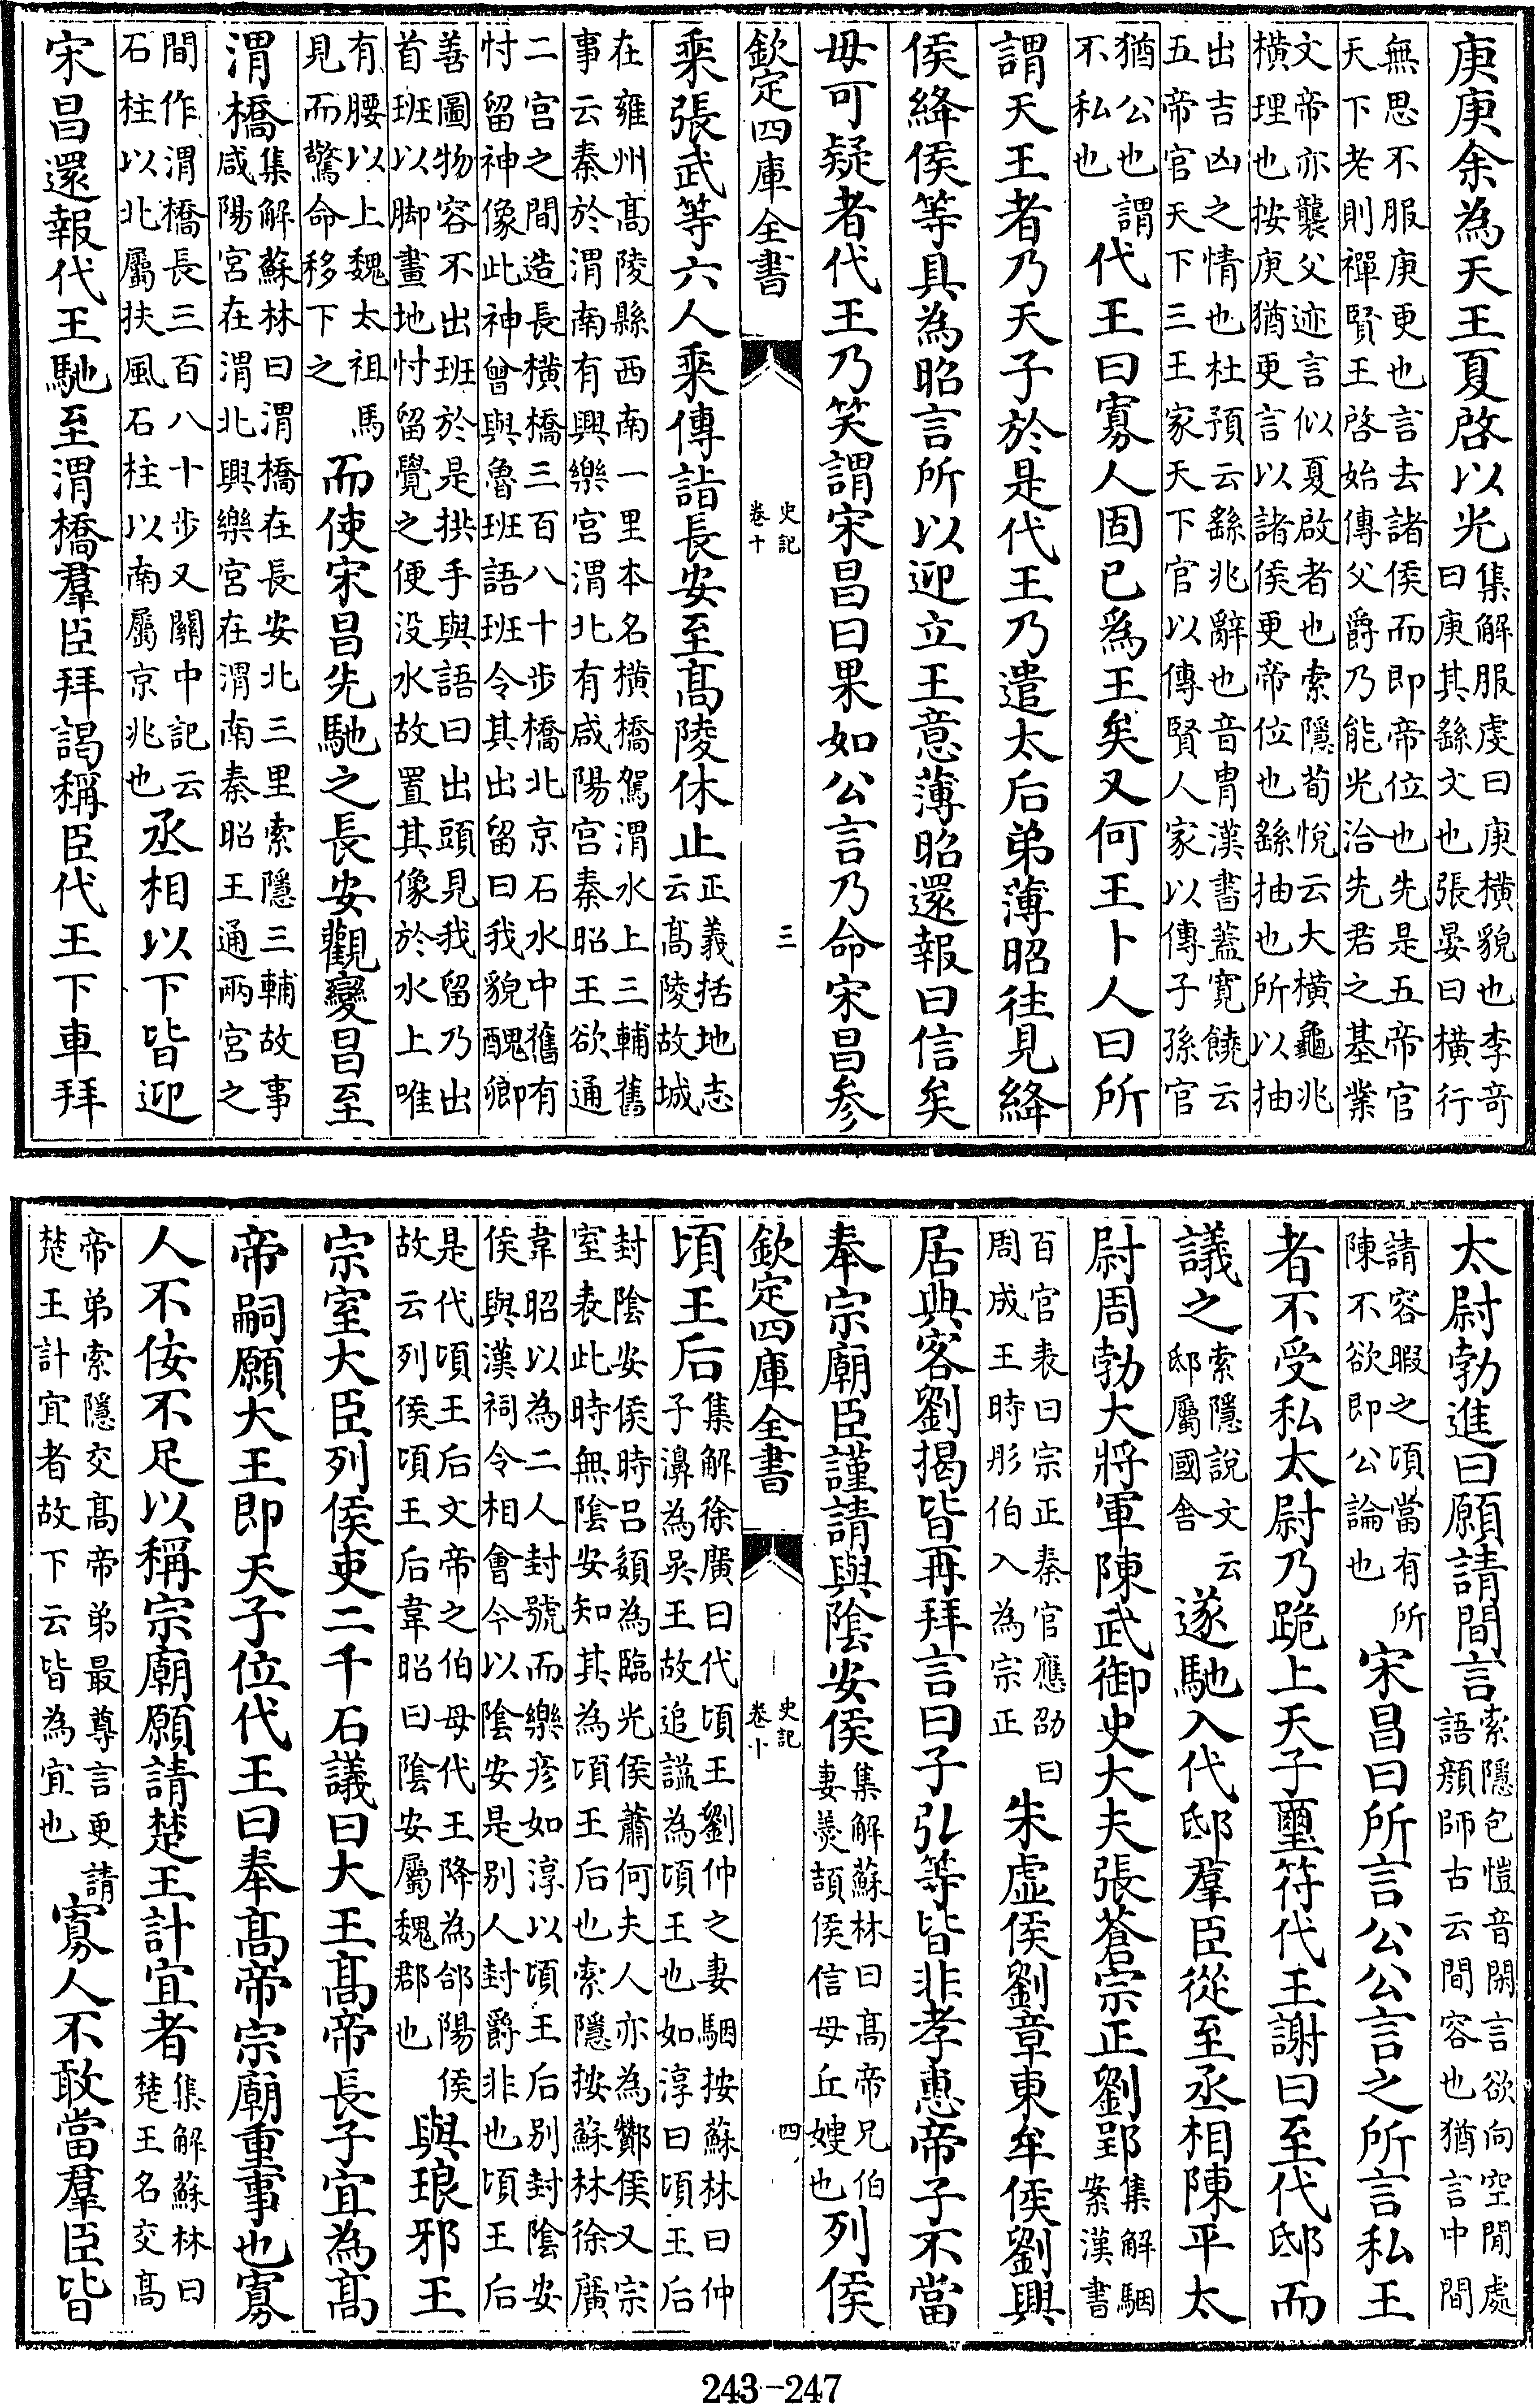 庚庚余為天王夏啓以光集解服虔曰庚橫貌也李竒曰庚其繇文也張晏曰橫行
無思不服庚更也言去諸侯而即帝位也先是五帝官天下老則禪賢王啓始傳父爵乃能光治先君之基業
文帝亦襲父迹言似夏啟者也索隱荀悅云大橫龜兆橫理也按庚猶更言以諸侯更帝位也繇抽也所以抽
出吉凶之情也杜預云繇兆辭也音冑漢書蓋寛饒云五帝官天下三王家天下官以傳賢人家以傳子孫官
猶公也謂不私也代王曰寡人固已爲王矣又何王卜人曰所
謂天王者乃天子於是代王乃遣太后弟薄昭往見絳
侯絳侯等具為昭言所以迎立王意薄昭還報曰信矣
毋可疑者代王乃笑謂宋昌曰果如公言乃命宋昌参
欽定四庫全書 史記卷十 三
乘張武等六人乘傳詣長安至髙陵休止正義括地志云髙陵故城
在雍州髙陵縣西南一里本名橫橋駕渭水上三輔舊事云秦於渭南有興樂宮渭北有咸陽宫秦昭王欲通
二宮之間造長橫橋三百八十步橋北京石水中舊有忖留神像此神曾與魯班語班令其出留曰我貌醜卿
善圖物容不出班於是拱手與語曰出頭見我留乃出首班以脚畫地忖留覺之便没水故置其像於水上唯
有腰以上魏太祖馬見而驚命移下之而使宋昌先馳之長安觀變昌至
渭橋集解蘇林曰渭橋在長安北三里索隱三輔故事咸陽宮在渭北興樂宮在渭南秦昭王通兩宮之
間作渭橋長三百八十步又關中記云石柱以北屬扶風石柱以南屬京兆也丞相以下皆迎
宋昌還報代王馳至渭橋羣臣拜謁稱臣代王下車拜
太尉勃進曰願請間言索隱包愷音閑言欲向空閒處語顔師古云間容也猶言中間
請容暇之頃當有所陳不欲即公論也宋昌曰所言公公言之所言私王
者不受私太尉乃跪上天子璽符代王謝曰至代邸而
議之索隱說文云邸屬國舍遂馳入代邸羣臣從至丞相陳平太
尉周勃大將軍陳武御史大夫張蒼宗正劉郢集解駰案漢書
百官表曰宗正秦官應劭曰周成王時彤伯入為宗正朱虛侯劉章東牟侯劉興
居典客劉揭皆再拜言曰子弘等皆非孝惠帝子不當
奉宗廟臣謹請與陰安侯集解蘇林曰髙帝兄伯妻羮頡侯信母丘嫂也列侯
欽定四庫全書 史記卷十 四
頃王后集解徐廣曰代頃王劉仲之妻駰按蘇林曰仲子濞為吳王故追謚為頃王也如淳曰頃王后
封陰安侯時呂嬃為臨光侯蕭何夫人亦為酇侯又宗室表此時無陰安知其為頃王后也索隱按蘇林徐廣
韋昭以為二人封號而樂彦如淳以頃王后别封陰安侯與漢祠令相會今以陰安是别人封爵非也頃王后
是代頃王后文帝之伯母代王降為郃陽侯故云列侯頃王后韋昭曰陰安屬魏郡也與琅邪王
宗室大臣列侯吏二千石議曰大王髙帝長子宜為髙
帝嗣願大王即天子位代王曰奉髙帝宗廟重事也寡
人不佞不足以稱宗廟願請楚王計宜者集解蘇林曰楚王名交髙
帝弟索隱交髙帝弟最尊言更請楚王計宜者故下云皆為宜也寡人不敢當羣臣皆
243-247